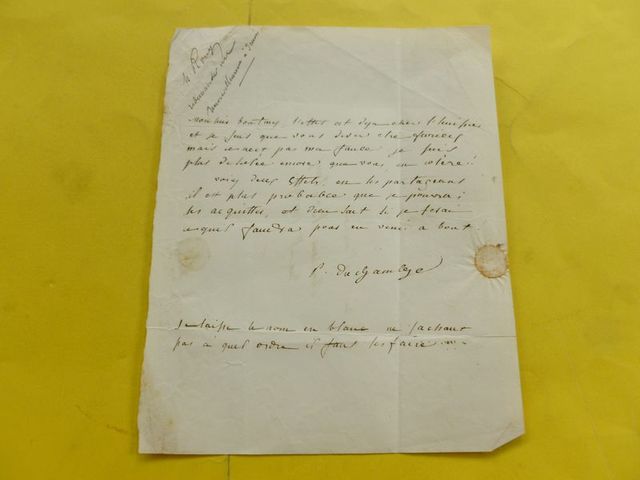 Mr Roug
renouveler
Monsieur Boutmy l'effet est deja chez l'huissier
et je sais que vous devez être furieux
mais ce n'est pas ma faute je suis
plus désolée encore que vous, en colère !
voici deux effets, en les partageant
il est plus probable que je pourrai
les acquitter, et dieu sait si je ferai
ce qu'il faudra pour en venir a bout
P. Duchambge
Je laisse le nom en blanc ne sachant
pas à quel ordre il faut les faire